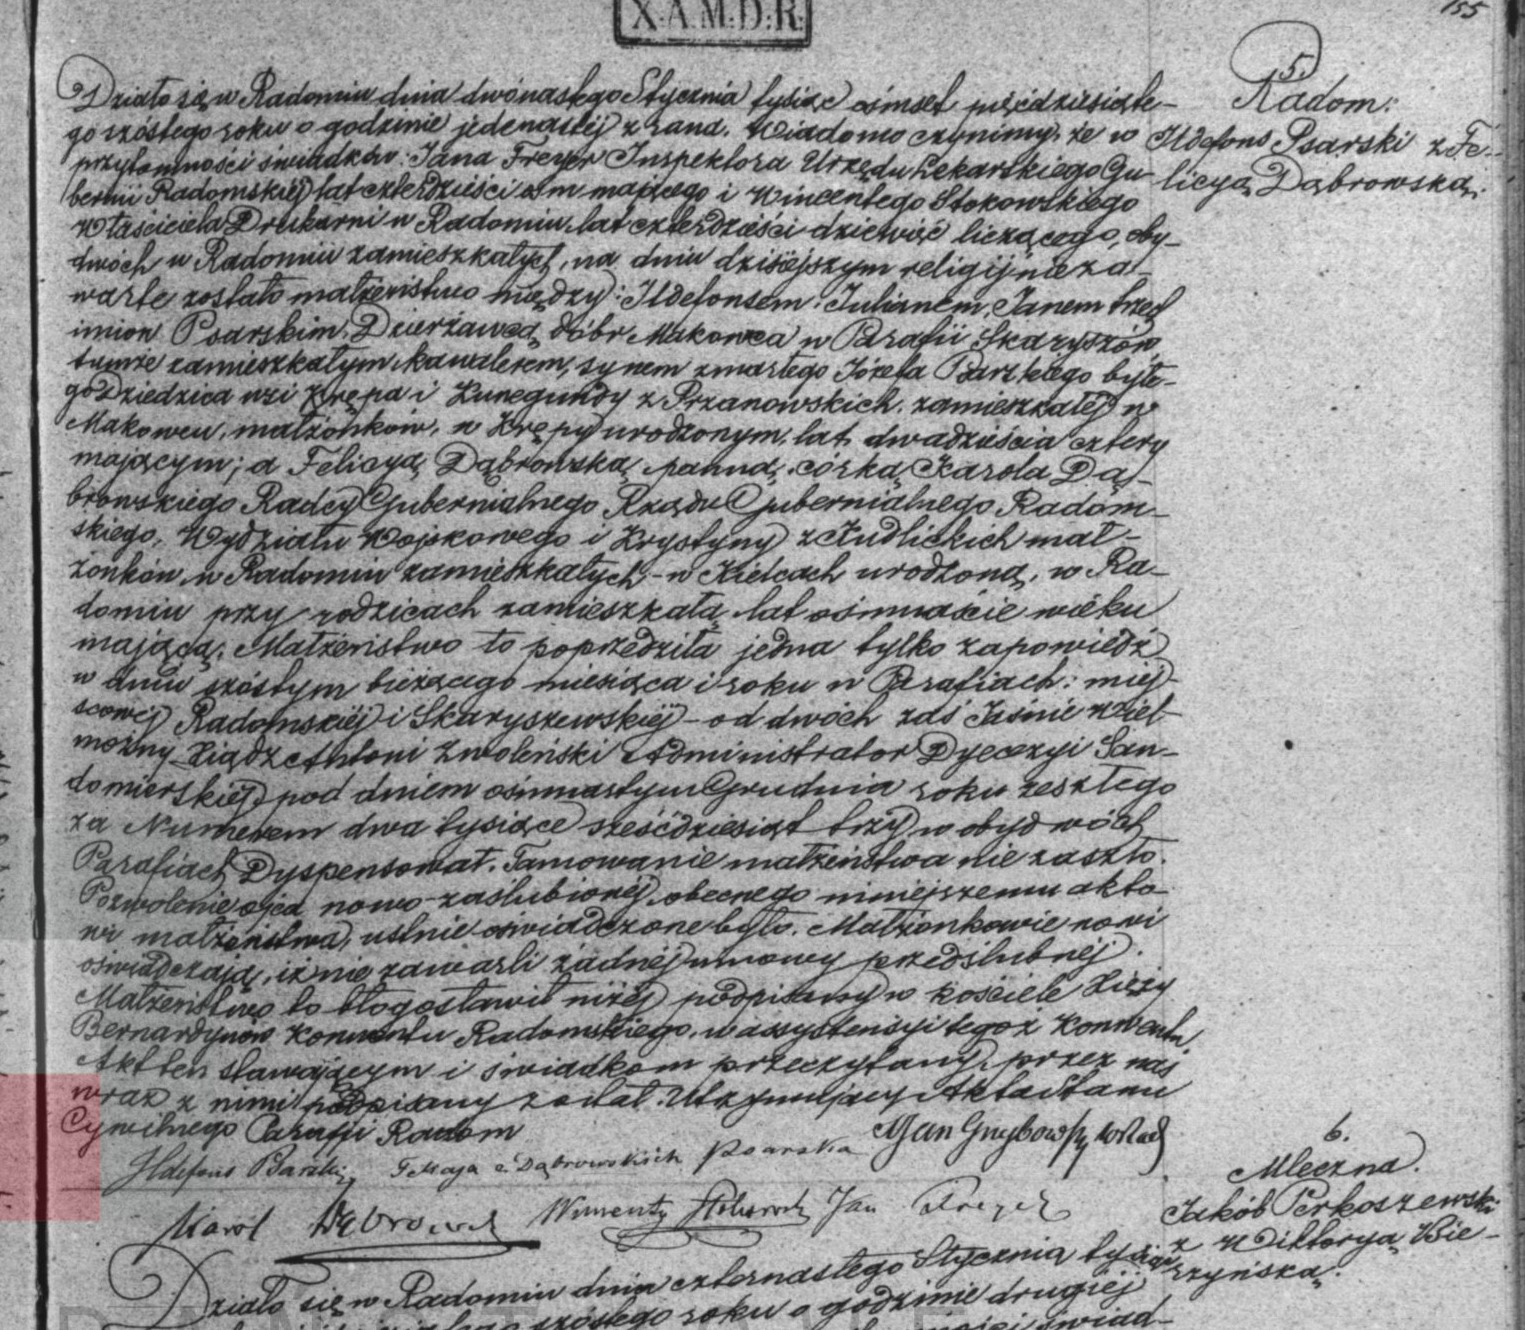 X.A.M.D.R.
155
5.
Radom:
Ildefons Psarski z Fe-
licyą Dąbrowską.
Działo się w Radomiu dnia dwónastego Stycznia tysiąc ośmset pięćdziesiąte-
go szóstego roku o godzinie jedenastéj z rana. Wiadomo czynimy, że w
przytomności świadków: Jana Freyer Inspektora Urzędu Lekarskiego Gu-
bernii Radomskiéj lat czterdzieści ośm mającego i Wincentego Stokowskiego
Właściciela Drukarni w Radomiu lat czterdzieści dziewięć liczącego, oby-
dwóch w Radomiu zamieszkałych, na dniu dzisiéjszym religijnie za-
warte zostało małżeństwo między: Ildefonsem: Julianem, Janem trzech
imion Psarskim, Dzierżawcą dóbr Makowca w Parafii Skaryszów
tamże zamieszkałym kawalerem, synem zmarłego Józefa Psarskiego byłe-
go Dziedzica wsi Krępa i Kunegundy z Przanowskich, zamieszkałéj w
Makowcu, małżonków, w Krępy urodzonym, lat dwadzieścia cztery
mającym; a Felicyą Dąbrowską panną, córką Karola Dą-
browskiego Radcy Gubernialnego Rządu Gubernialnego Radom-
skiego, Wydziału Wojskowego i Krystyny z Kudlickich mał-
żonków w Radomiu zamieszkałych - w Kielcach urodzoną, w Ra-
domiu przy rodzicach zamieszkałą lat ośmnaście wieku
mającą. Małżeństwo to poprzedziła jedna tylko zapowiedź
w dniu szóstym bieżącego miesiąca i roku w Parafiach: miéj-
scowéj Radomskiéj i Skaryszewskiéj - od dwóch zaś Jaśnie Wiel-
możny Xiądz Antoni Zwoleński Administrator Dyecezyi San-
domierskiéj pod dniem ośmnastym Grudnia roku zeszłego
za Numerem dwa tysiące sześćdziesiąt trzy w obydwóch
Parafiach Dyspensował. Tamowanie małżeństwa nie zaszło.
Pozwolenie ojca nowo-zaślubionéj obecnego niniejszemu akto-
wi małżeństwa, ustnie oświadczone było. Małżonkowie nowi
oświadczają, iż nie zawarli żadnéj umowy przedślubnéj.
Małżeństwo to błogosławił niżéj podpisany w kościele Xięży
Bernardynów Konwentu Radomskiego, w assystensyi tegoż Konwentu
Akt ten stawającym i świadkom przeczytany, przez nas
wraz z nimi podpisany został. Utrzymujący Akta Stanu
Cywilnego Parafii Radom
Ildefons Psarski Felicya z Dąbrowskich Psarska
Karol Dąbrowski Wincenty Stokowski Jan Freyer
6.
Mleczna.
Jakób Perkoszewski
z Wiktoryą Bie-
rzyńską.
Działo się w Radomiu dnia czternastego Stycznia tysiąc
szóstego roku o godzinie drugiéj
świad-